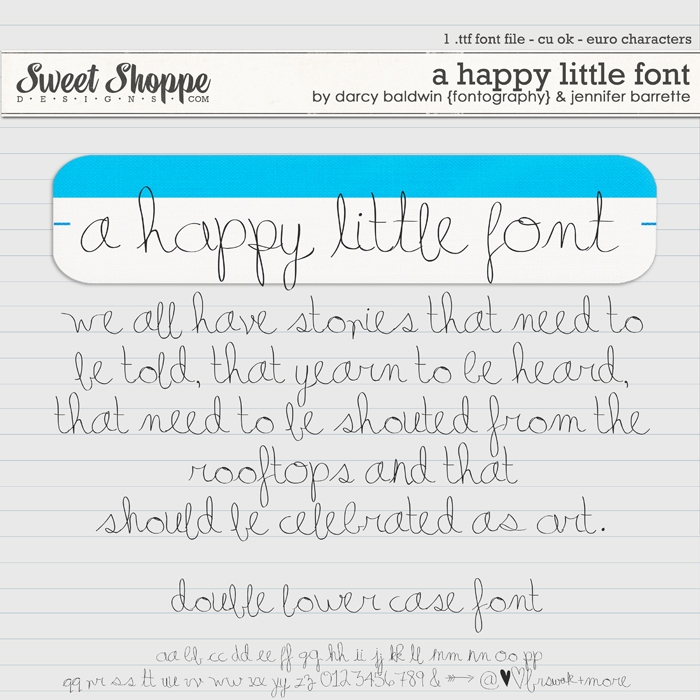 1 .ttf font file - cu ok - euro characters
Sweet Shoppe
D·E·S·I·G·N·S·.COM
a happy little font
by darcy baldwin {fontography} & jennifer barrette
a happy little font
we all have stories that need to
be told, that yearn to be heard,
that need to be shouted from the
rooftops and that
should be celebrated as art.
double lower case font
aa bb cc dd ee ff gg hh ii jj kk ll mm nn oo pp
qq rr ss tt uu vv ww xx yy zz 0123456789 & @ + more